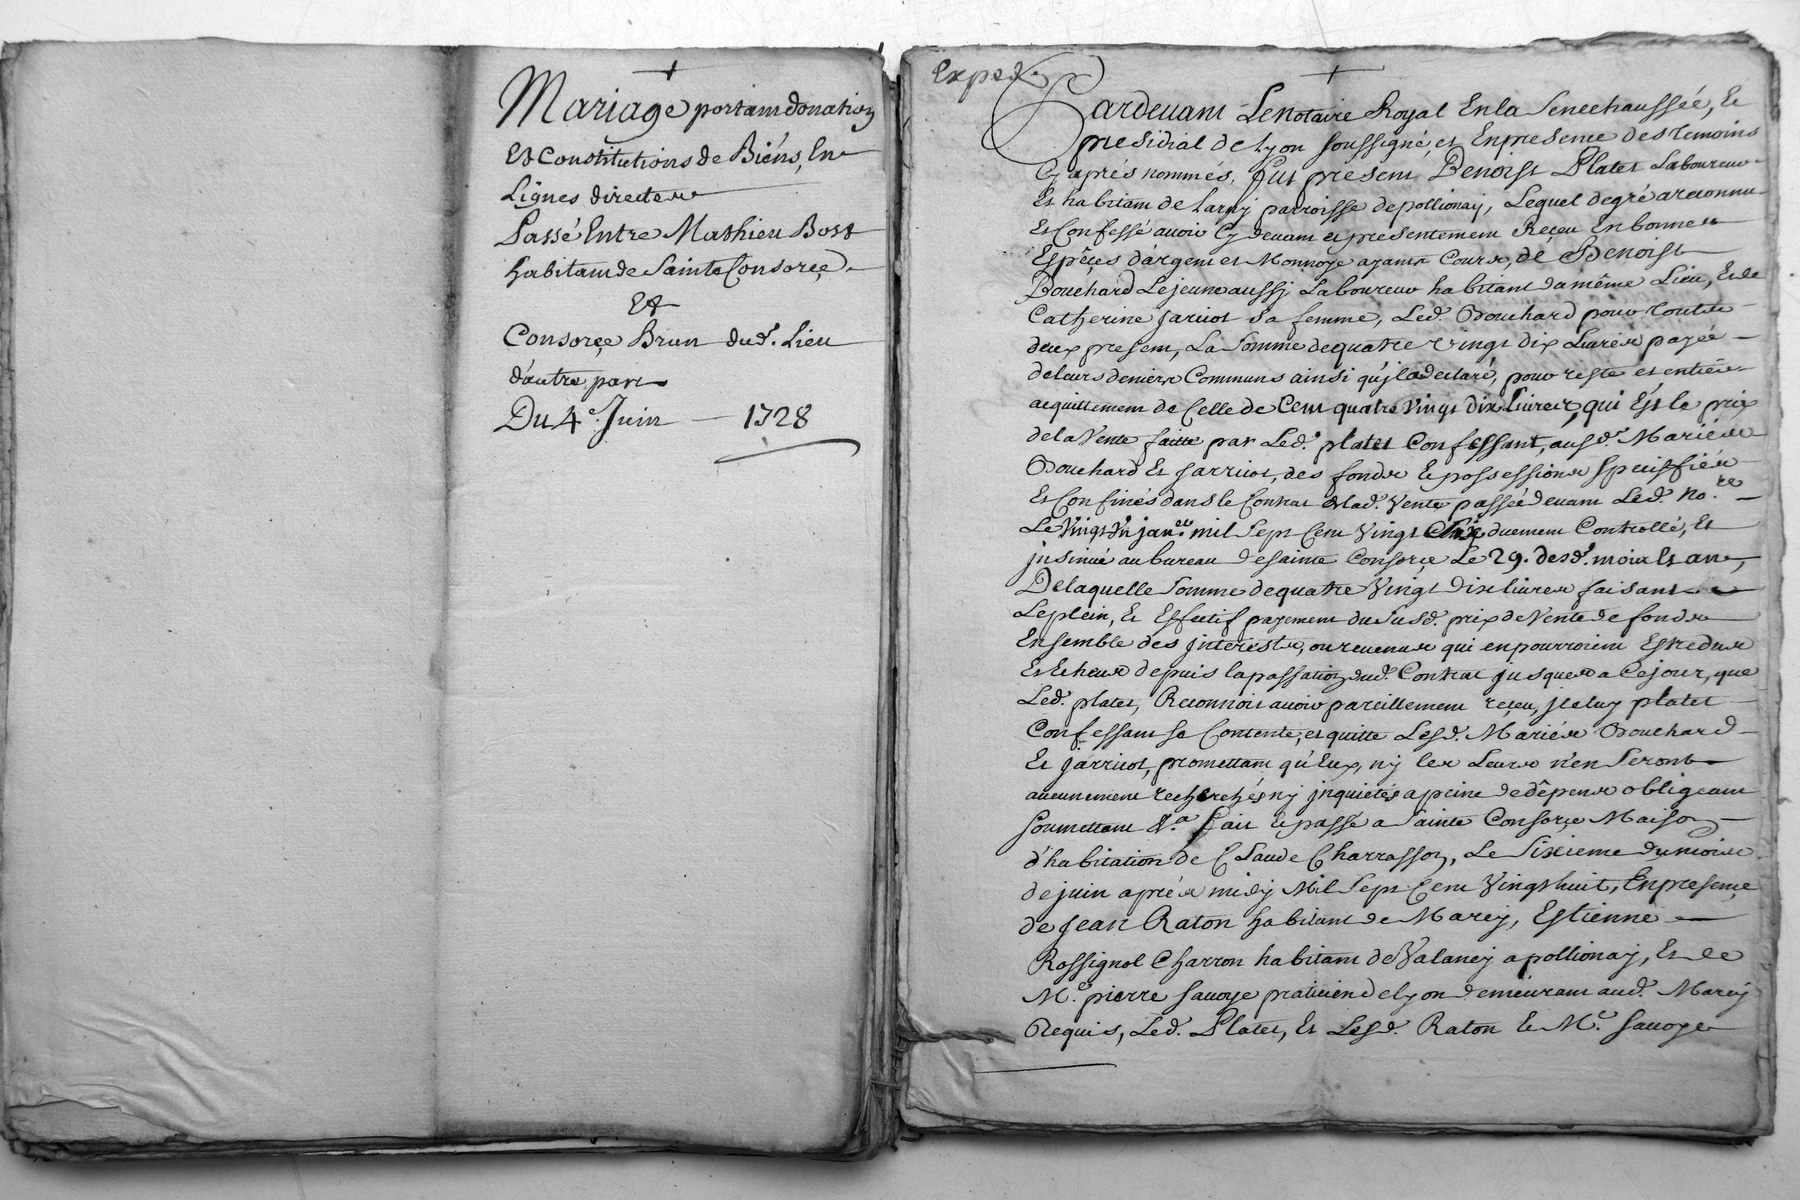 Mariage portant donation
Et Constitutions de Biéns, En
Lignes directes
Passé Entre Mathieu Bost
habitant de Sainte Consorçe
Et
Consorçe Brun dud. Lieu
d'autre part
Du 4e. Juin 1728
Exped.
Pardevant Le Notaire Royal En la Senechaussée, Et
presidial de Lyon soussigné, et En presence des temoins
Cy aprés nommés, fut present Benoist Platet Laboureur
Et habitant de Larny parroisse de pollionay, Lequel de gré a reconnu
Et Confessé avoir Cy devant et presentement Reçeu En bonnes
Espêçes d'argent et Monnoye ayants Cours, de Benoist
Bouchard Le jeune aussy Laboureur habitant du même Lieu, Et de
Catherine Jarricot sa femme, Led. Bouchard pour tous
deux present, La Somme de quatre vingt dix Livres payée
de leurs deniers Communs ainsi qu'jl a declaré, pour reste et entier
acquittement de Celle de Cent quatre Vingt dix Livres, qui Est le prix
de la Vente faitte par Led. platet Confessant, ausd. Mariés
Bouchard Et Jarricot, des fonds Et possessions specifiés
Et Confinés dans le Contrat de lad. Vente passé devant Led. No.re
Le Vingt Un jan.er mil Sept Cent Vingt duement Controllé, Et
jnsinué au bureau de sainte Consorçe Le 29. desd. mois Et an,
De laquelle Somme de quatre Vingt dix livres faisant
Le plein, Et Effectif payement du susd. prix de Vente de fonds
Ensemble des jnterests, ou revenus qui en pourroient Estre dus
Et Echeus depuis la passation dud. Contrat jusques a Ce jour, que
Led. platet, Reconnoit avoir pareillement reçeu, jceluy platet
Confessant se Contente, et quitte Lesd. Mariés Bouchard
Et Jarricot, promettant qu'Eux, ny les Leurs n'en Seront
aucunement recherchés ny jnquietés a peine de dêpens obligeant
soumettant &.a fait Et passé a Sainte Consorçe Maison
d'habitation de Claude Charrasson, Le Sixieme du mois
de juin aprés midy Mil Sept Cent Vingt huit, En presençe
de Jean Raton habitant de Marcy, Estienne
Rossignol Charron habitant de Valancy a pollionay, Et de
M.e pierre Savoye praticien de Lyon demeurant aud. Marcy
Requis, Led. Platet, Et Lesd. Raton Et M.e Savoye